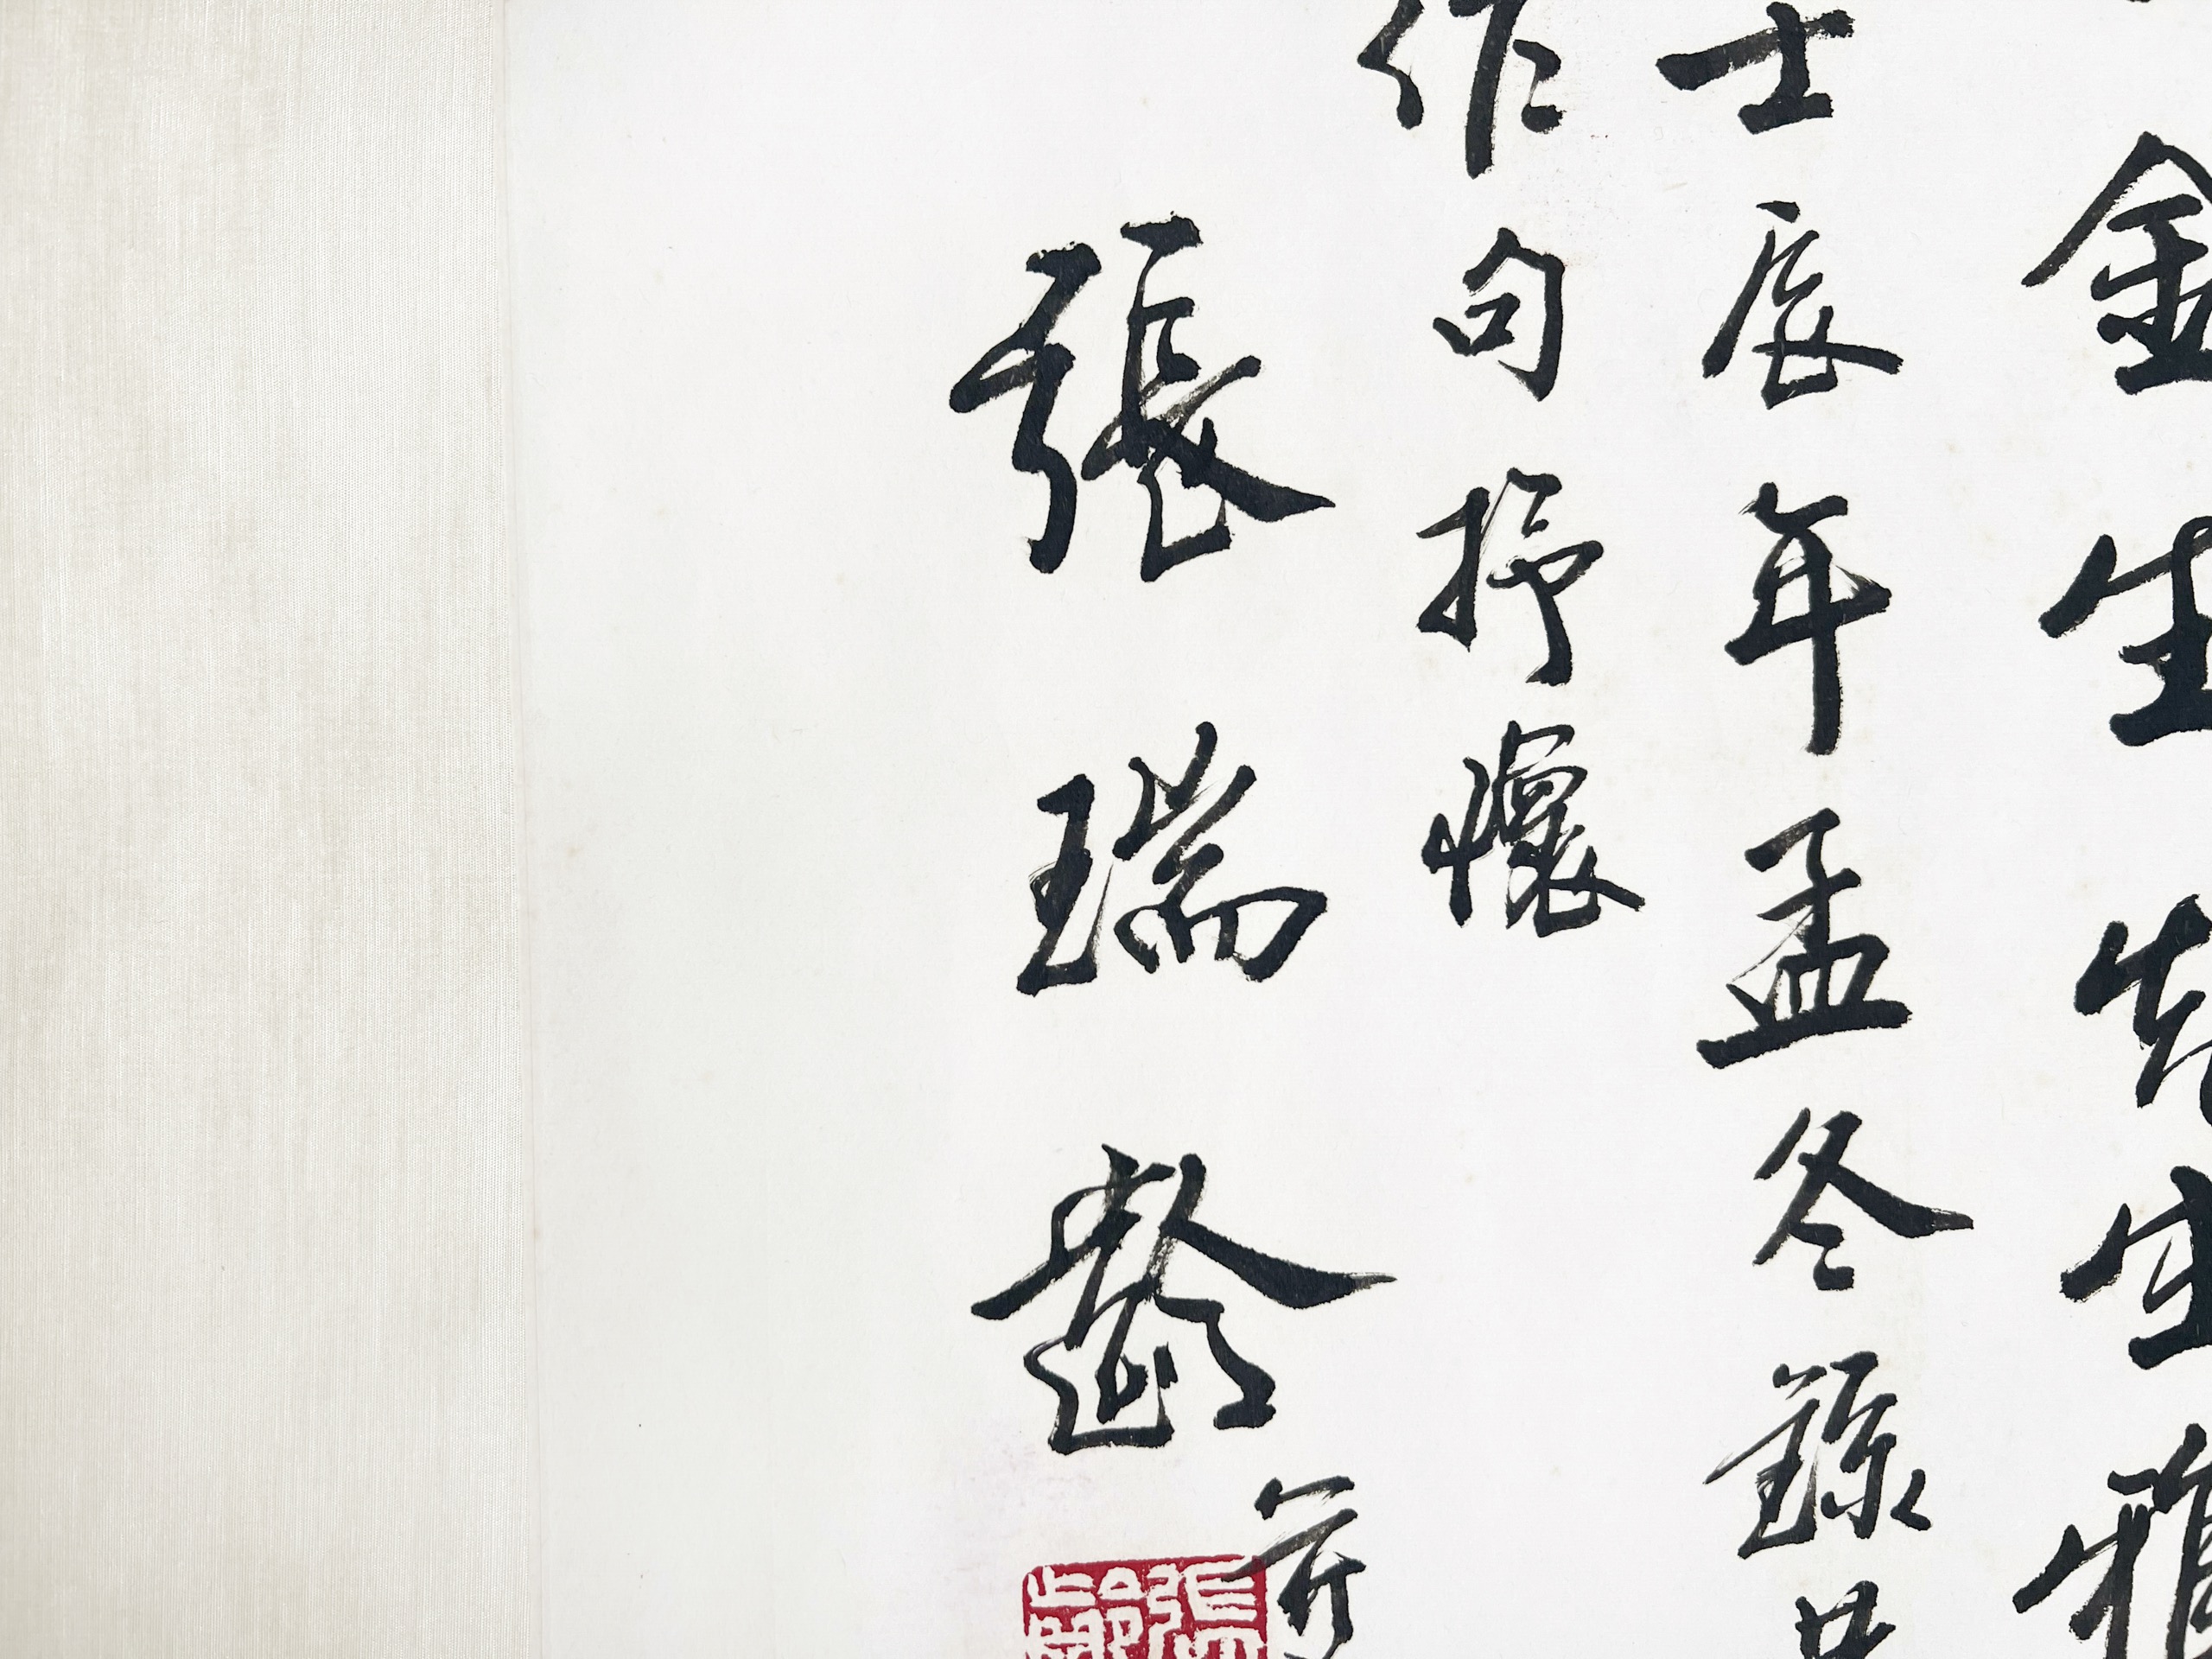 金生先生雅
士辰年孟冬錄共
作句抒懷
張瑞齡